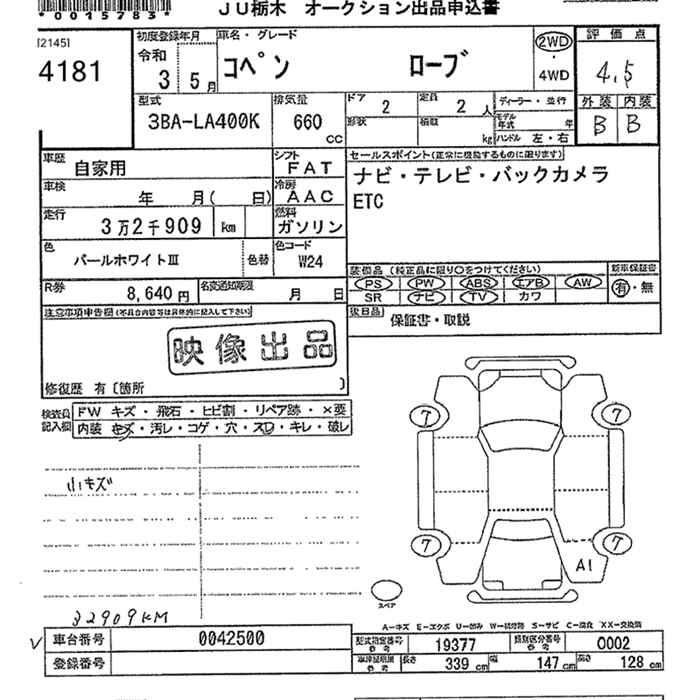 *0015783*
JU栃木 オークション出品申込書
[2145]
4181
初度登録年月
令和
3 5月
車名・グレード
コペン ローブ
2WD
・
4WD
評価点
4.5
外装 内装
B B
型式
3BA-LA400K
排気量
660
CC
ドア 2
定員 2 人
形状
積載 kg
ディーラー・並行
モデル年式 年
ハンドル 左・右
車歴 自家用
シフト FAT
車検 年 月( 日)
冷房 AAC
走行 3万2千909 km
燃料 ガソリン
色 パールホワイトⅢ
色替
色コード W24
R券 8,640円
名変通知期限 月 日
セールスポイント(正常に機能するものに限ります)
ナビ・テレビ・バックカメラ
ETC
装備品(純正品に限り○をつけてください)
PS PW ABS エアB AW
SR ナビ TV カワ
新車保証書
有・無
後日品 保証書・取説
注意事項申告欄(不具合内容等は具体的に記入して下さい)
映像出品
修復歴 有〔箇所 〕
検査員記入欄
FW キズ・飛石・ヒビ割・リペア跡・×要
内装 キズ・汚レ・コゲ・穴・スレ・キレ・破レ
小キズ
32909KM
7
7
7
7
A1
スペア
A-キズ E-エクボ U-凹み W-補修跡 S-サビ C-腐食 XX-交換済
車台番号 0042500
登録番号
型式指定番号 参考 19377
類別区分番号 参考 0002
車検証記載 参考 長さ 339cm 幅 147cm 高さ 128cm